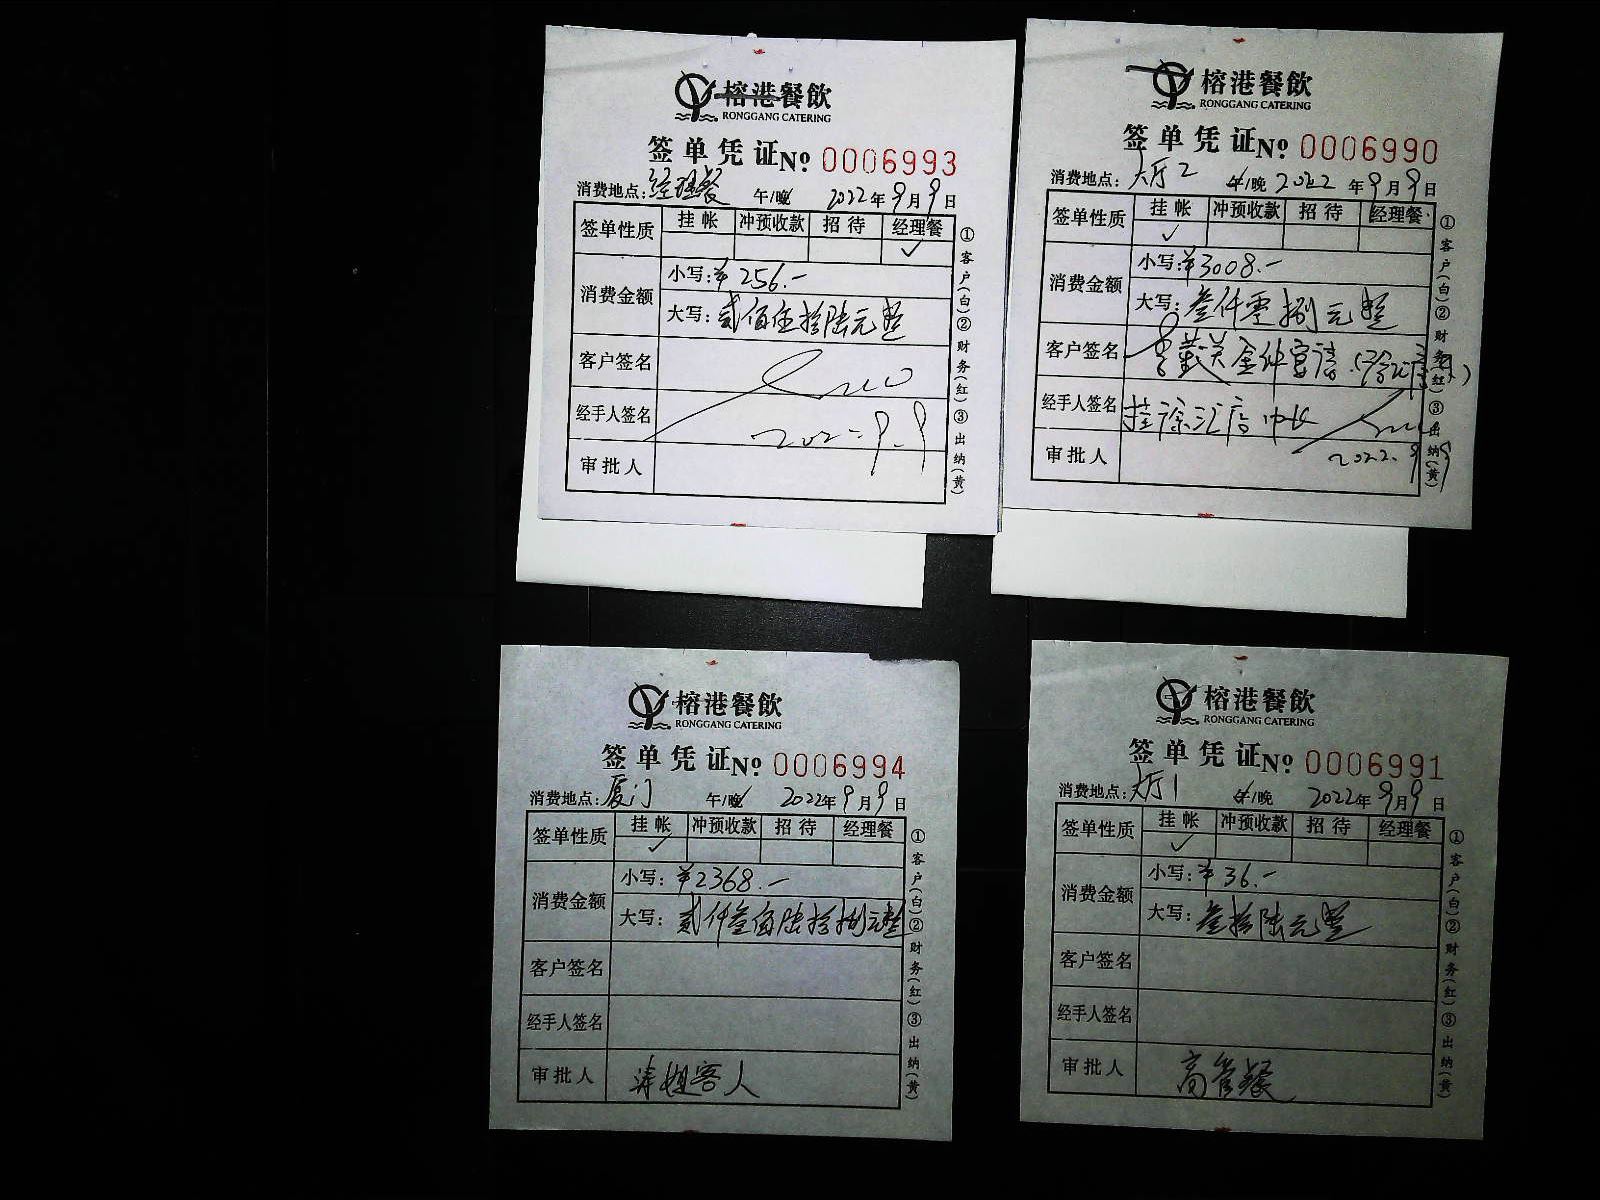 榕港餐飲
RONGGANG CATERING
签单凭证 No. 0006993
消费地点:经理餐 午/晚 2022年9月9日
签单性质 挂帐 冲预收款 招待 经理餐
✓
消费金额 小写:¥256.-
大写:贰佰伍拾陆元整
客户签名
经手人签名 2022.9.9
审批人
①客户(白)②财务(红)③出纳(黄)
榕港餐飲
RONGGANG CATERING
签单凭证 No. 0006990
消费地点:大厅2 午/晚 2022年9月9日
签单性质 挂帐 冲预收款 招待 经理餐
✓
消费金额 小写:¥3008.-
大写:叁仟零捌元整
客户签名
经手人签名 挂徐汇店
2022.9.9
审批人
①客户(白)②财务(红)③出纳(黄)
榕港餐飲
RONGGANG CATERING
签单凭证 No. 0006994
消费地点:厦门 午/晚 2022年9月9日
签单性质 挂帐 冲预收款 招待 经理餐
✓
消费金额 小写:¥2368.-
大写:贰仟叁佰陆拾捌元整
客户签名
经手人签名
审批人 涛姐客人
①客户(白)②财务(红)③出纳(黄)
榕港餐飲
RONGGANG CATERING
签单凭证 No. 0006991
消费地点:大厅1 午/晚 2022年9月9日
签单性质 挂帐 冲预收款 招待 经理餐
✓
消费金额 小写:¥36.-
大写:叁拾陆元整
客户签名
经手人签名
审批人 高管餐
①客户(白)②财务(红)③出纳(黄)